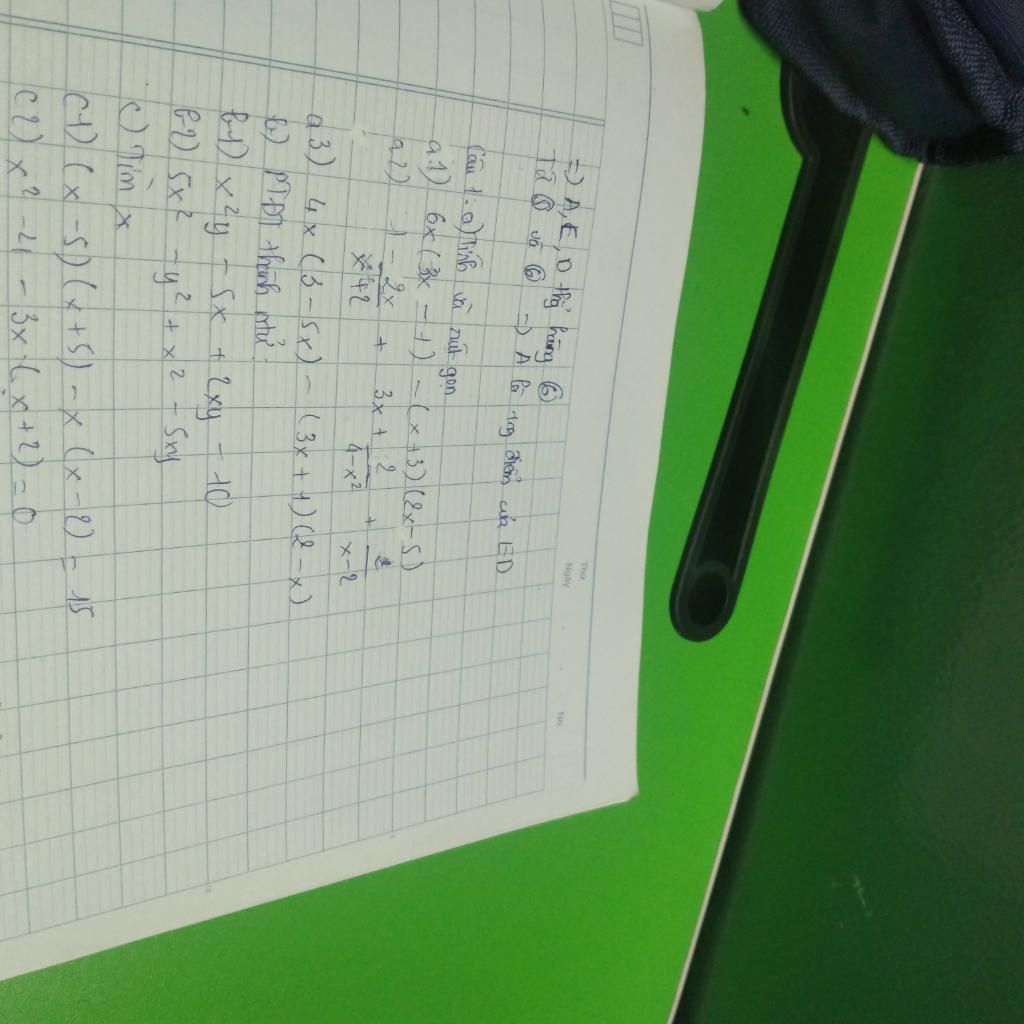 Thứ
Ngày
No.
=) A, E, D thẳng hàng ⑥
Từ ⑤ và ⑥ =) A là trg điểm của ED
Câu 1: a) Tính và rút gọn
a1) 6x(3x - 1) - (x+3)(2x-5)
a2) 1 - 2x/x+2 + 3x+2/4-x² + 2/x-2
a3) 4x(3-5x) - (3x+1)(2-x)
b) PTĐT thành ntử.
b1) x²y - 5x + 2xy - 10
b2) 5x² - y² + x² - 5xy
c) Tìm x
c1) (x-5)(x+5) - x(x-2) = 15
c2) x² - 4 - 3x.(x+2) = 0